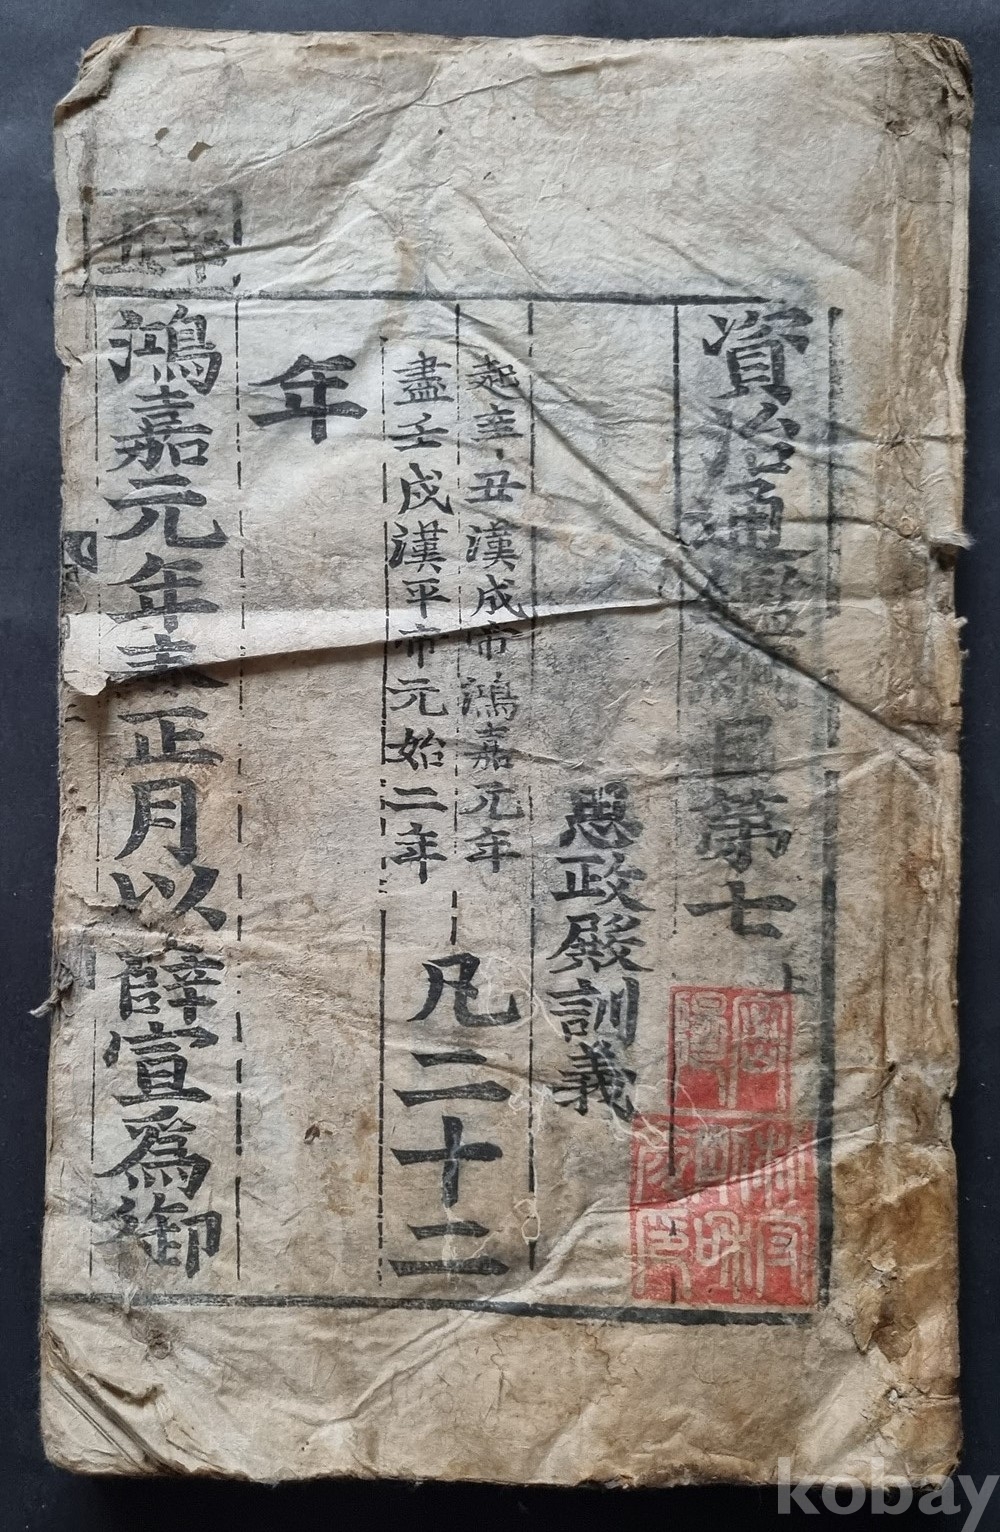 資治通鑑綱目第七 上
思政殿訓義
起辛丑漢成帝鴻嘉元年
盡壬戌漢平帝元始二年
凡二十二
年
辛丑
鴻嘉元年春正月以薛宣爲御
kobay